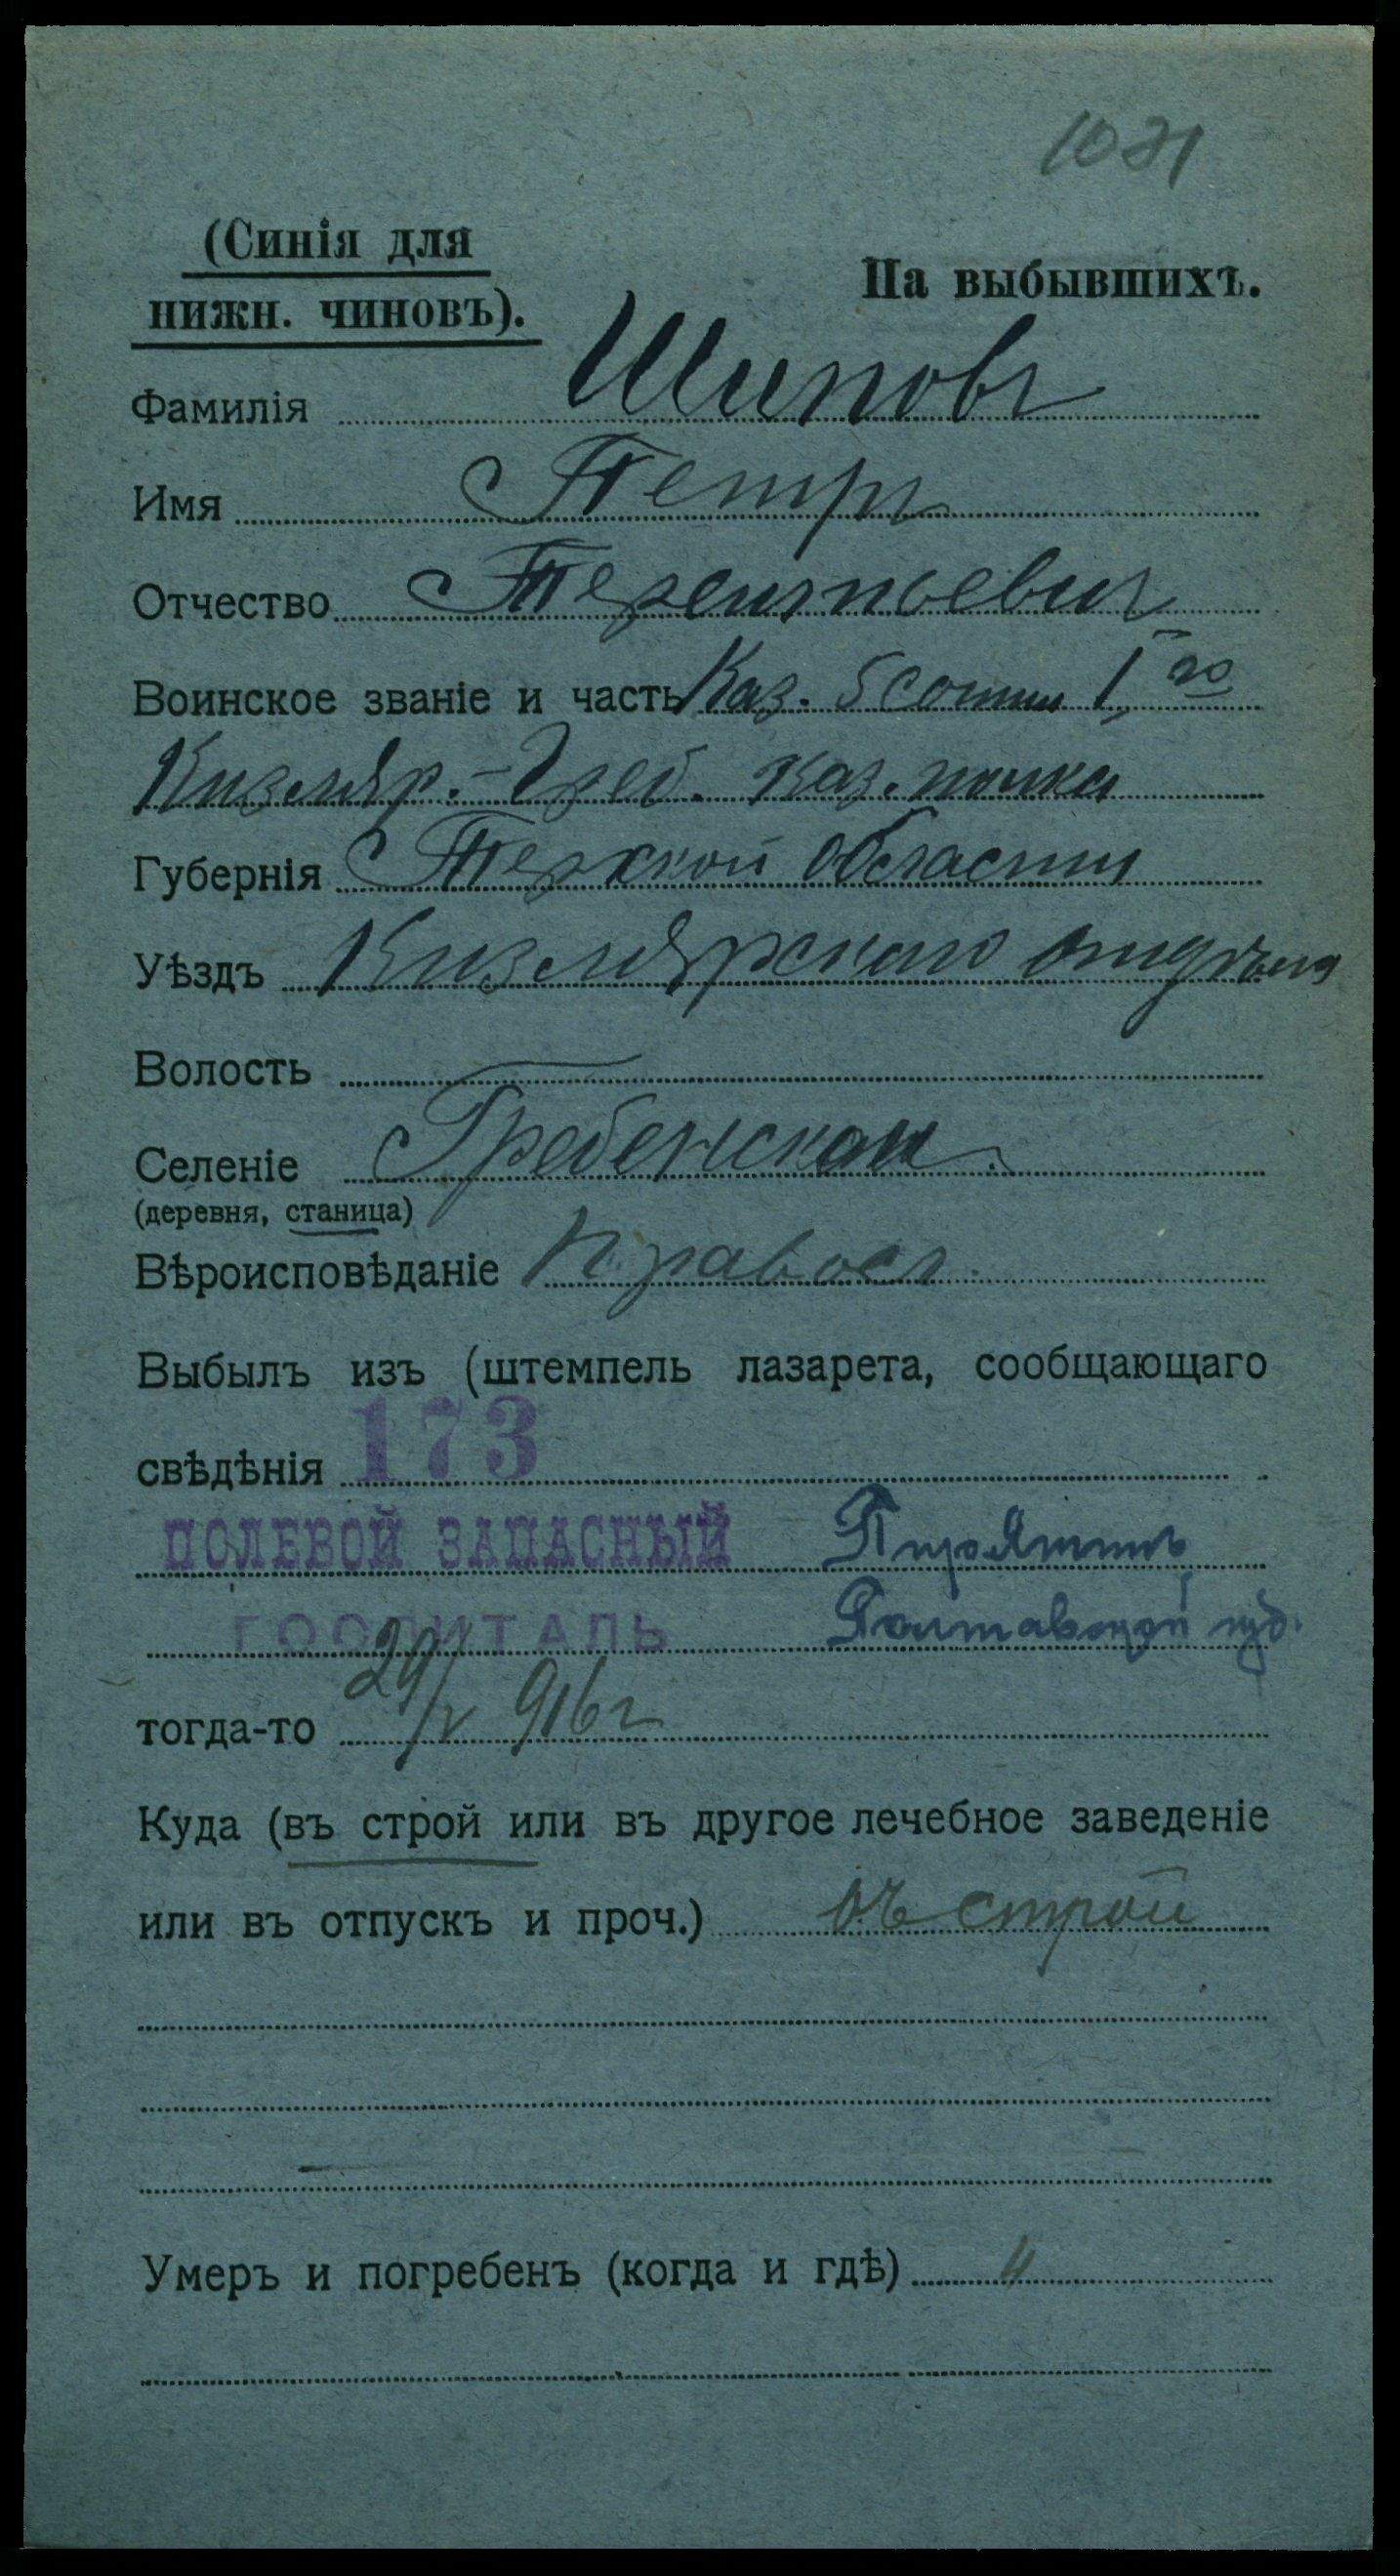 1071
(Синія для
нижн. чиновъ).
На выбывшихъ.
Фамилія Шиповъ
Имя Петръ
Отчество Терентьевич
Воинское званіе и часть Каз. 5 сотни 1го
Кизляр.-Греб. каз. полка
Губернія Терской области
Уѣздъ Кизлярскаго отдѣла
Волость
Селеніе Гребенская
(деревня, станица)
Вѣроисповѣданіе Правосл.
Выбылъ изъ (штемпель лазарета, сообщающаго
свѣдѣнія 173
ПОЛЕВОЙ ЗАПАСНЫЙ Пирятинъ
ГОСПИТАЛЬ Полтавской губ.
тогда-то 29/V 916 г
Куда (въ строй или въ другое лечебное заведеніе
или въ отпускъ и проч.) въ строй
Умеръ и погребенъ (когда и гдѣ) "